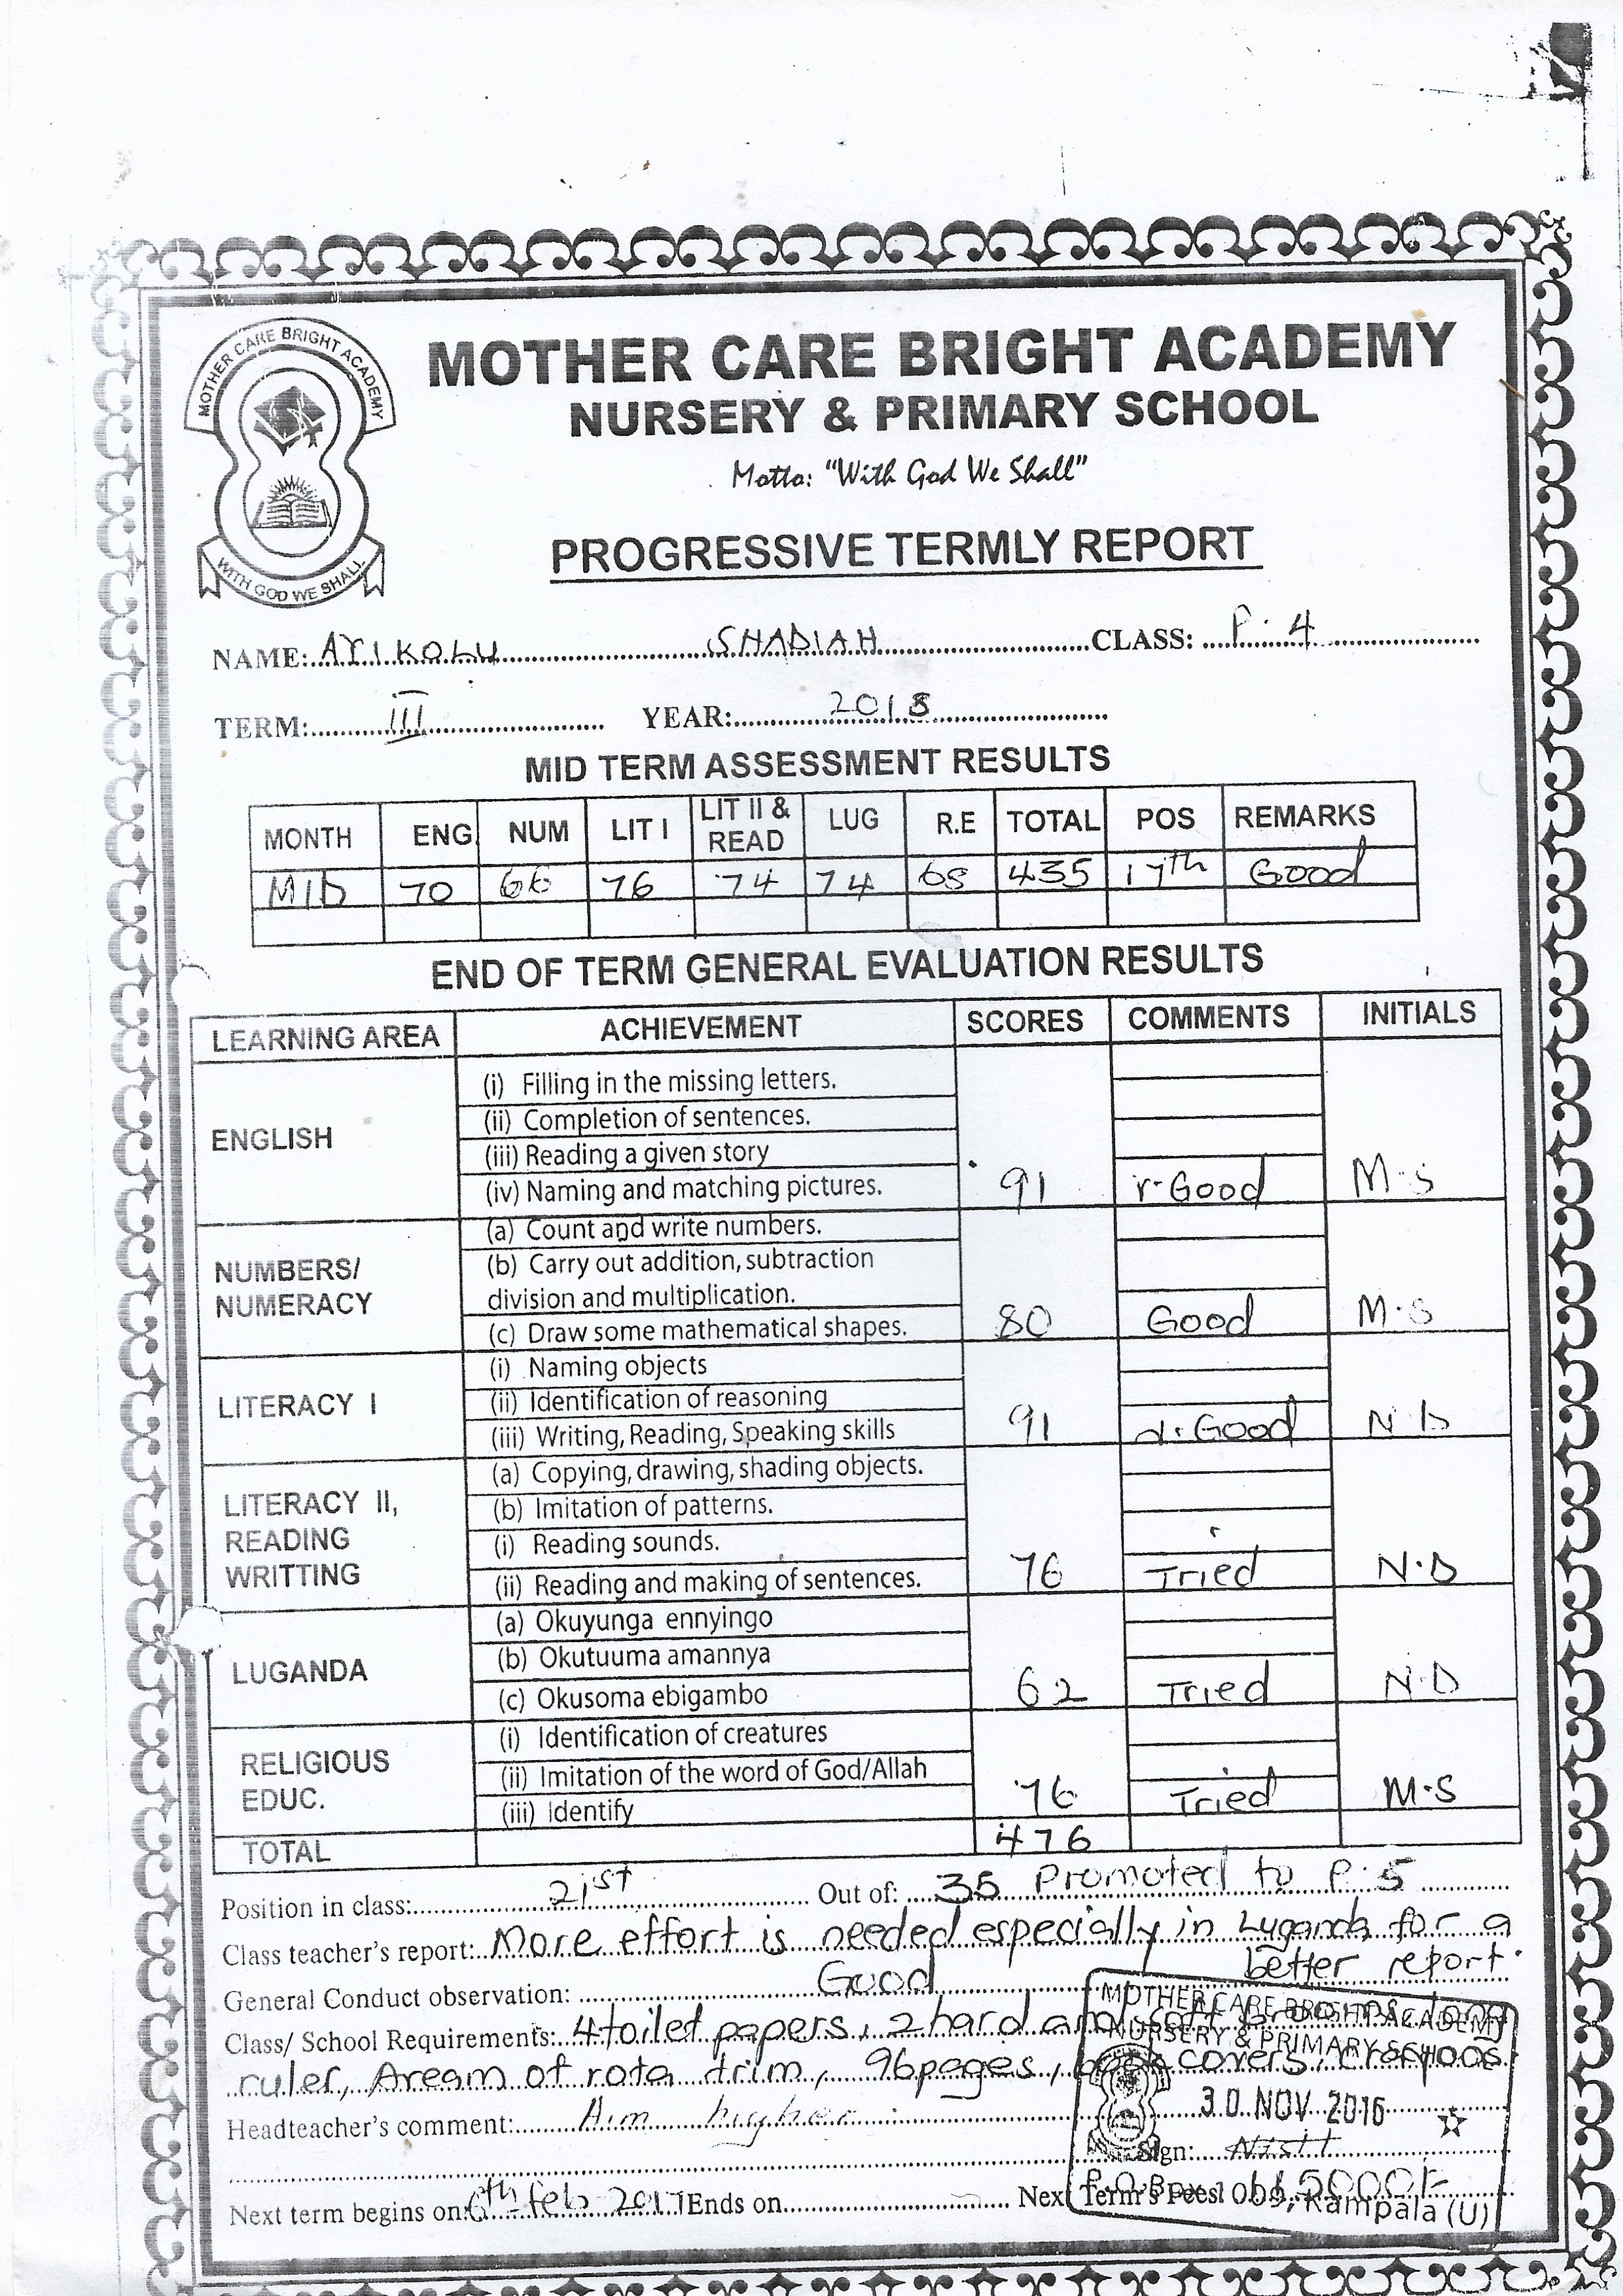 MOTHER CARE BRIGHT ACADEMY
WITH GOD WE SHALL
MOTHER CARE BRIGHT ACADEMY
NURSERY & PRIMARY SCHOOL
Motto: "With God We Shall"
PROGRESSIVE TERMLY REPORT
NAME: AYIKOLU SHADIAH CLASS: P.4
TERM: III YEAR: 2018
MID TERM ASSESSMENT RESULTS
MONTH ENG NUM LIT I LIT II & READ LUG R.E TOTAL POS REMARKS
MID 70 66 76 74 74 68 435 17th Good
END OF TERM GENERAL EVALUATION RESULTS
LEARNING AREA ACHIEVEMENT SCORES COMMENTS INITIALS
ENGLISH
(i) Filling in the missing letters.
(ii) Completion of sentences.
(iii) Reading a given story
(iv) Naming and matching pictures. 91 v.Good M.S
NUMBERS/
NUMERACY
(a) Count and write numbers.
(b) Carry out addition, subtraction
division and multiplication.
(c) Draw some mathematical shapes. 80 Good M.S
LITERACY I
(i) Naming objects
(ii) Identification of reasoning
(iii) Writing, Reading, Speaking skills 91 Good N.D
LITERACY II,
READING
WRITTING
(a) Copying, drawing, shading objects.
(b) Imitation of patterns.
(i) Reading sounds.
(ii) Reading and making of sentences. 76 Tried N.D
LUGANDA
(a) Okuyunga ennyingo
(b) Okutuuma amannya
(c) Okusoma ebigambo 62 Tried N.D
RELIGIOUS
EDUC.
(i) Identification of creatures
(ii) Imitation of the word of God/Allah
(iii) Identify 76 Tried M.S
TOTAL 476
Position in class: 21st Out of: 35 Promoted to P.5
Class teacher's report: More effort is needed especially in Luganda for a
better report.
General Conduct observation: Good
Class/ School Requirements: 4 toilet papers, 2 hard and soft brooms, long
ruler, A ream of rota trim, 96 pages, book covers, crayons
Headteacher's comment: Aim higher
Sign:
Next term begins on: 6th Feb 2017 Ends on Next Term's Fees:
MOTHER CARE BRIGHT ACADEMY
NURSERY & PRIMARY SCHOOL
30 NOV 2016
P.O.Box Kampala (U)